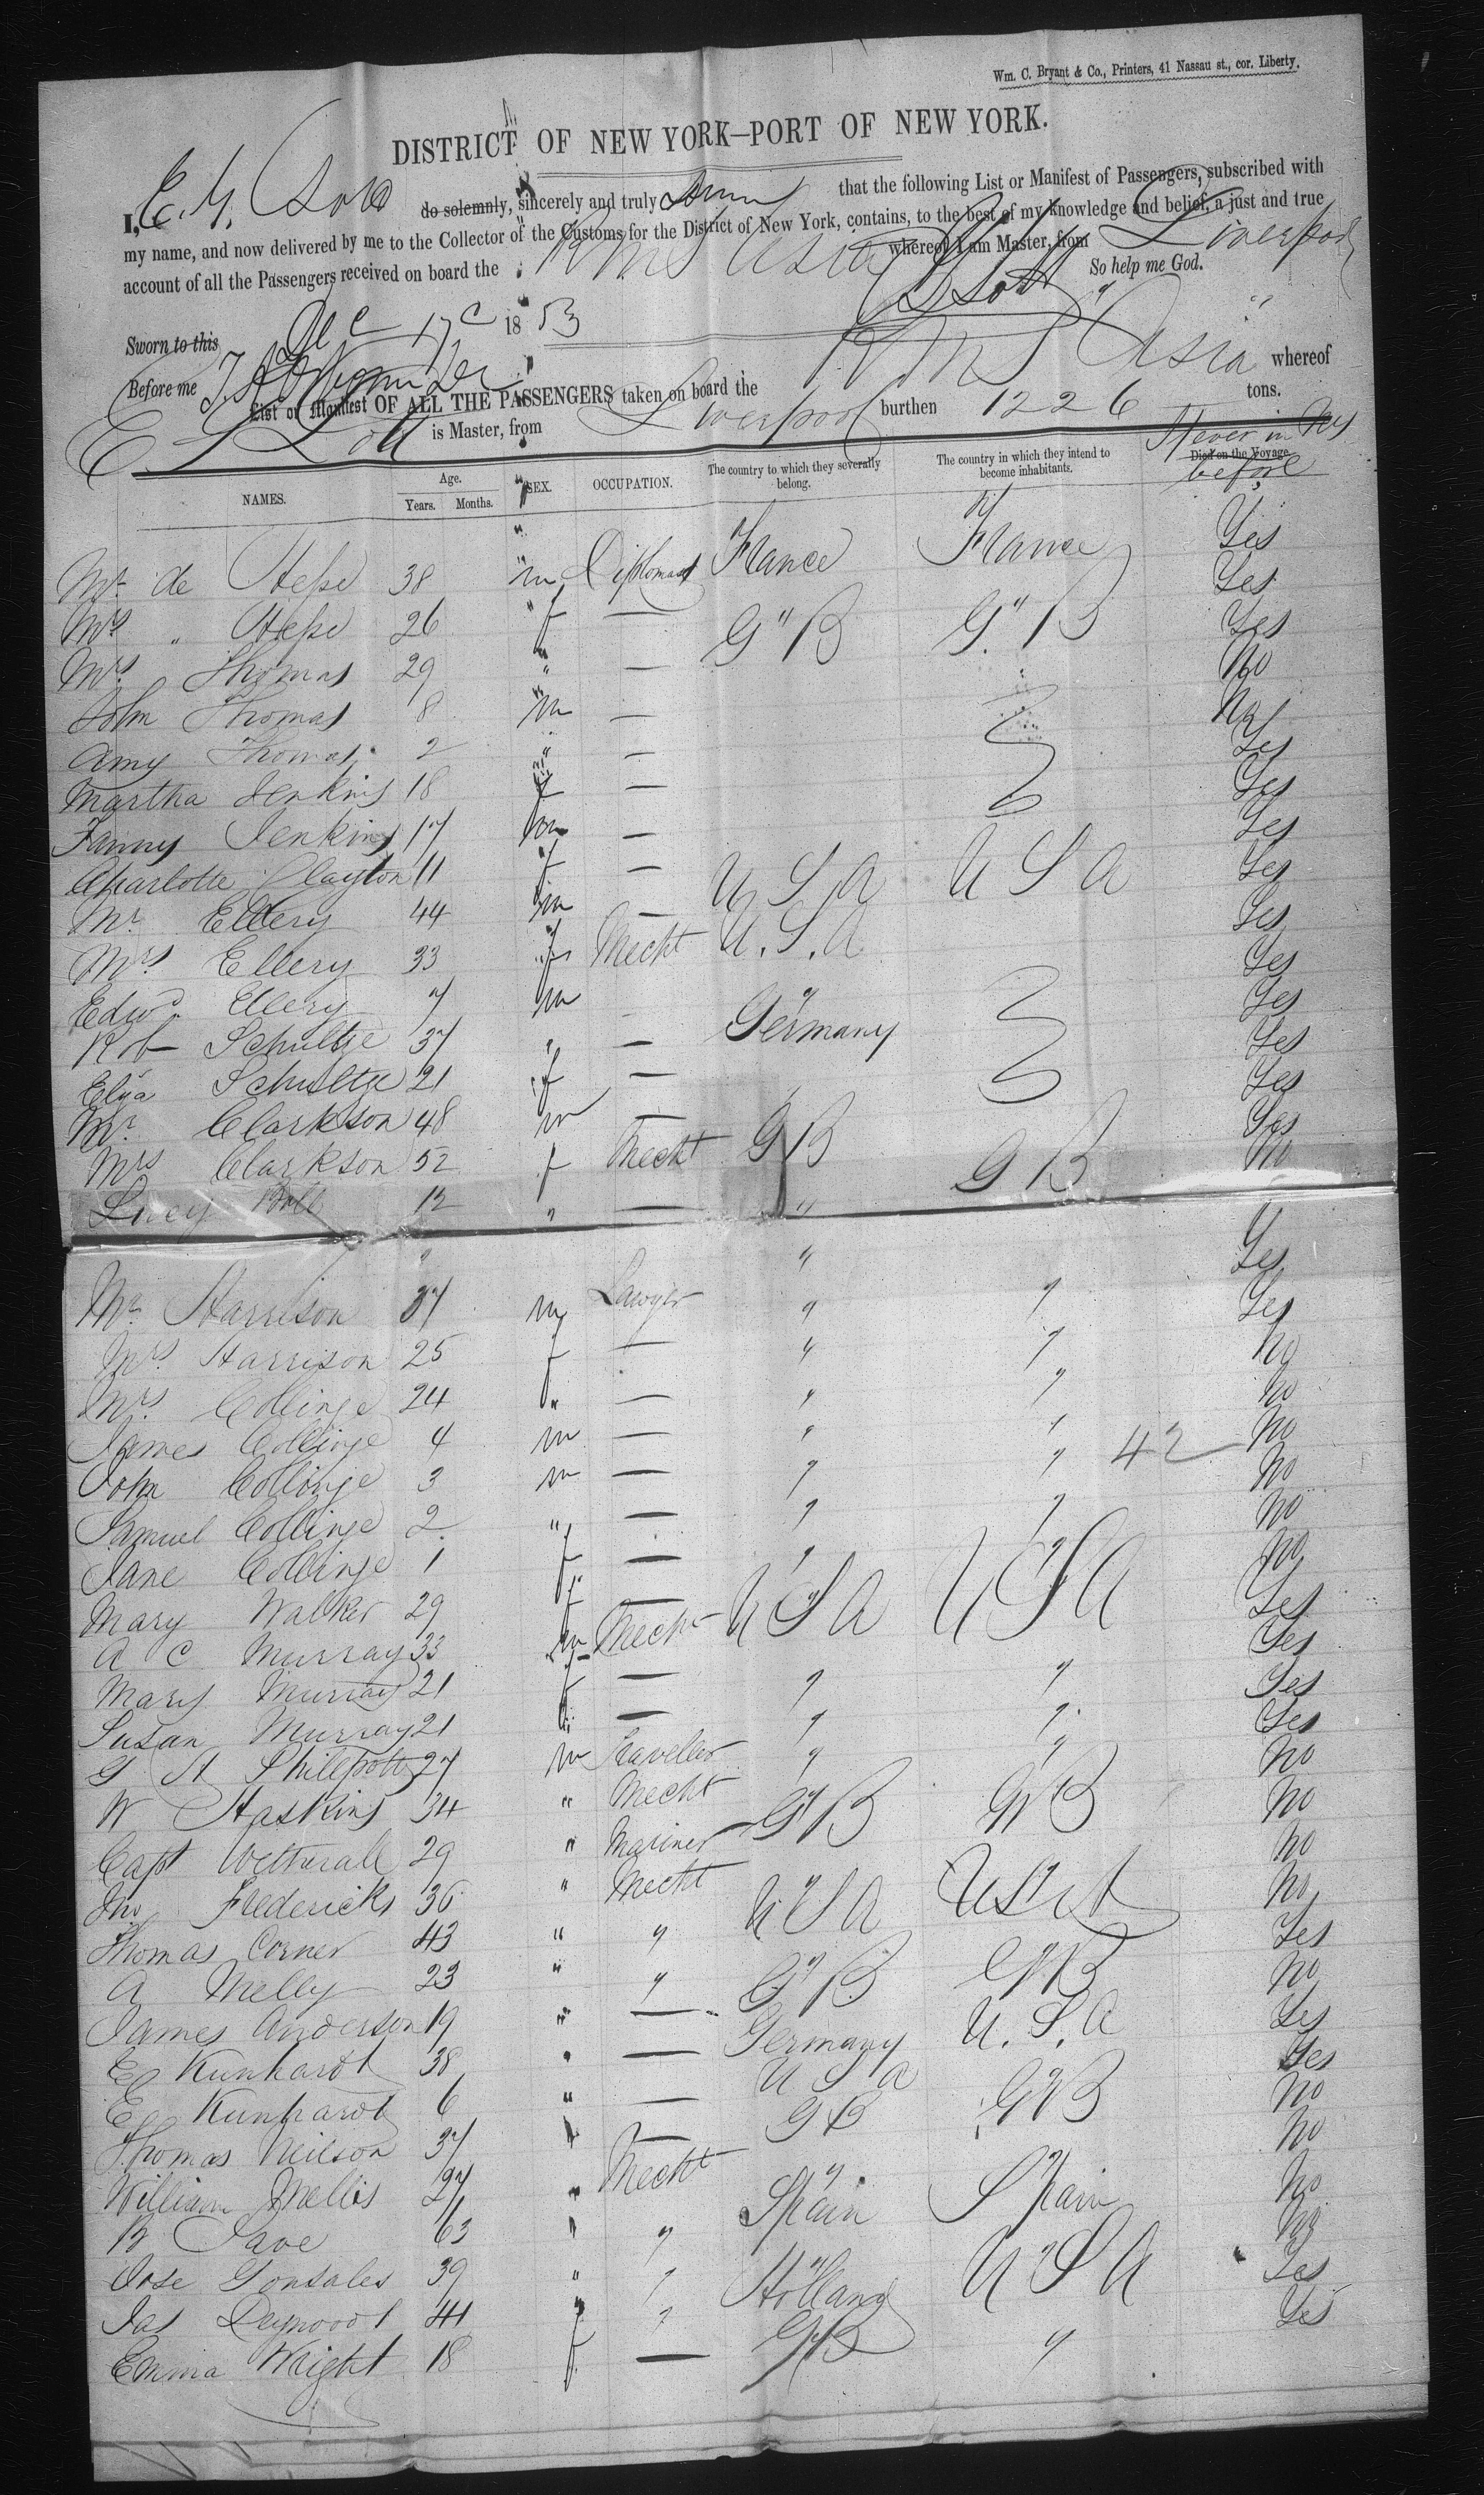 Wm. C. Bryant & Co., Printers, 41 Nassau st., cor. Liberty.
DISTRICT OF NEW YORK—PORT OF NEW YORK.
I, E. G. Lott do solemnly, sincerely and truly that the following List or Manifest of Passengers, subscribed with
my name, and now delivered by me to the Collector of the Customs for the District of New York, contains, to the best of my knowledge and belief, a just and true
account of all the Passengers received on board the RMS Asia whereof I am Master, from Liverpool
So help me God.
Sworn to this Dec 17 1853
Before me
List or Manifest OF ALL THE PASSENGERS taken on board the RMS Asia whereof
E G Lott is Master, from Liverpool burthen 1226 tons.
NAMES. Age. Years. Months. SEX. OCCUPATION. The country to which they severally belong. The country in which they intend to become inhabitants. Died on the Voyage. Never in NY before
Mr de 38 m Diplomat France France Yes
Mrs " 26 f — " " Yes
Mrs Thomas 29 " — G B G. B Yes
John Thomas 8 m — No
Amy Thomas 2 " — No
Martha Jenkins 18 f — Yes
Fanny Jenkins 17 — Yes
Charlotte Clayton 11 f — Yes
Mr Ellery 44 m — U S A U S A Yes
Mrs Ellery 33 f Mecht U.S.A Yes
Edwd. Ellery 7 m — Yes
Rob Schultze 37 " — Germany Yes
Eliza Schultze 21 f — Yes
Mr Clarkson 48 m — Yes
Mrs Clarkson 52 f Mecht G B G B Yes
Lucy 12 " — " No
Mr Harrison 37 m Lawyer " " Yes
Mrs. Harrison 25 f — " " Yes
Mrs. Collinge 24 " — " " No
James Collinge 4 m — " " No
John Collinge 3 m — " " 42 No
Samuel Collinge 2 " — " " No
Jane Collinge 1 f — " " No
Mary Walker 29 f — " " No
A C Murray 33 m Mecht U S A U S A Yes
Mary Murray 21 f — " " Yes
Susan Murray 21 " — " " Yes
G H Phillpotts 27 m Traveller " " Yes
W Haskins 34 " Mecht " " No
Capt Wetherall 29 " Mariner G B G B No
Jno Fredericks 36 " Mecht " " No
Thomas Corner 43 " " U S A U S A No
A Melly 23 " " G B G B Yes
James Anderson 19 " — " " No
E Kunhardt 38 " — Germany U. S. A Yes
E Kunhardt 6 " — U S A " Yes
Thomas Neilson 37 " — G B G B No
William Mellis 27 " Mecht " " No
63 " " Spain Spain No
Jose Gonsales 39 " " " " No
Jas 41 " " Holland U S A Yes
Emma Wright 18 f — G B " Yes